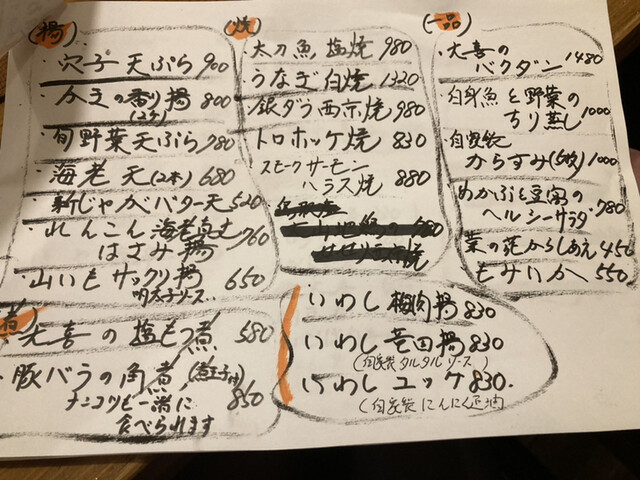 (揚)
・穴子 天ぷら 900
・かきの香り揚 800
(2ケ)
・旬野菜天ぷら 780
・海老 天(2本) 680
・新じゃがバター天 520
・れんこん海老真丈 760
はさみ揚
・山いもサックリ揚 650
明太子ソース
(煮)
・大喜の塩もつ煮 580
・豚バラの角煮(煮玉子付) 850
ナンコツも一緒に
食べられます
(焼)
・太刀魚塩焼 980
・うなぎ白焼 1220
・銀ダラ西京焼 980
・トロホッケ焼 830
・スモークサーモン
ハラス焼 880
(一品)
・大喜の
バクダン 1480
・白身魚と野菜の
ちり蒸し 1000
・自家製
からすみ(5枚) 1000
・めかぶと豆腐の
ヘルシーサラダ 780
・菜の花からしあえ 450
・もみいか 550
・いわし梅肉揚 830
・いわし竜田揚 830
(自家製タルタルソース)
・いわしユッケ 830.
(自家製にんにく正油)